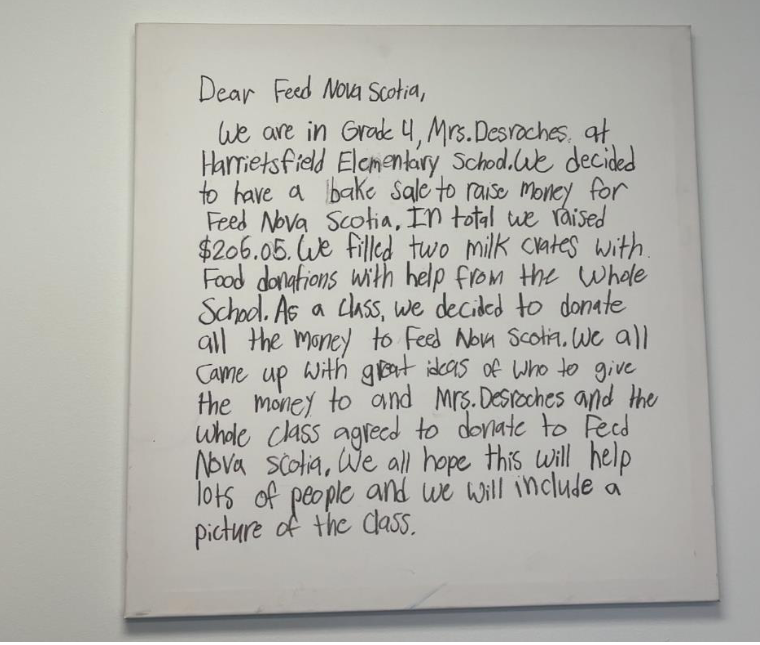 Dear Feed Nova Scotia,
We are in Grade 4, Mrs.Desroches. at
Harrietsfield Elementary School.We decided
to have a bake sale to raise money for
Feed Nova Scotia. In total we raised
$206.05. We filled two milk crates with
Food donations with help from the whole
School. As a class, we decided to donate
all the money to Feed Nova Scotia. We all
came up with great ideas of who to give
the money to and Mrs. Desroches and the
whole class agreed to donate to Feed
Nova scotia. We all hope this will help
lots of people and we will include a
picture of the class.